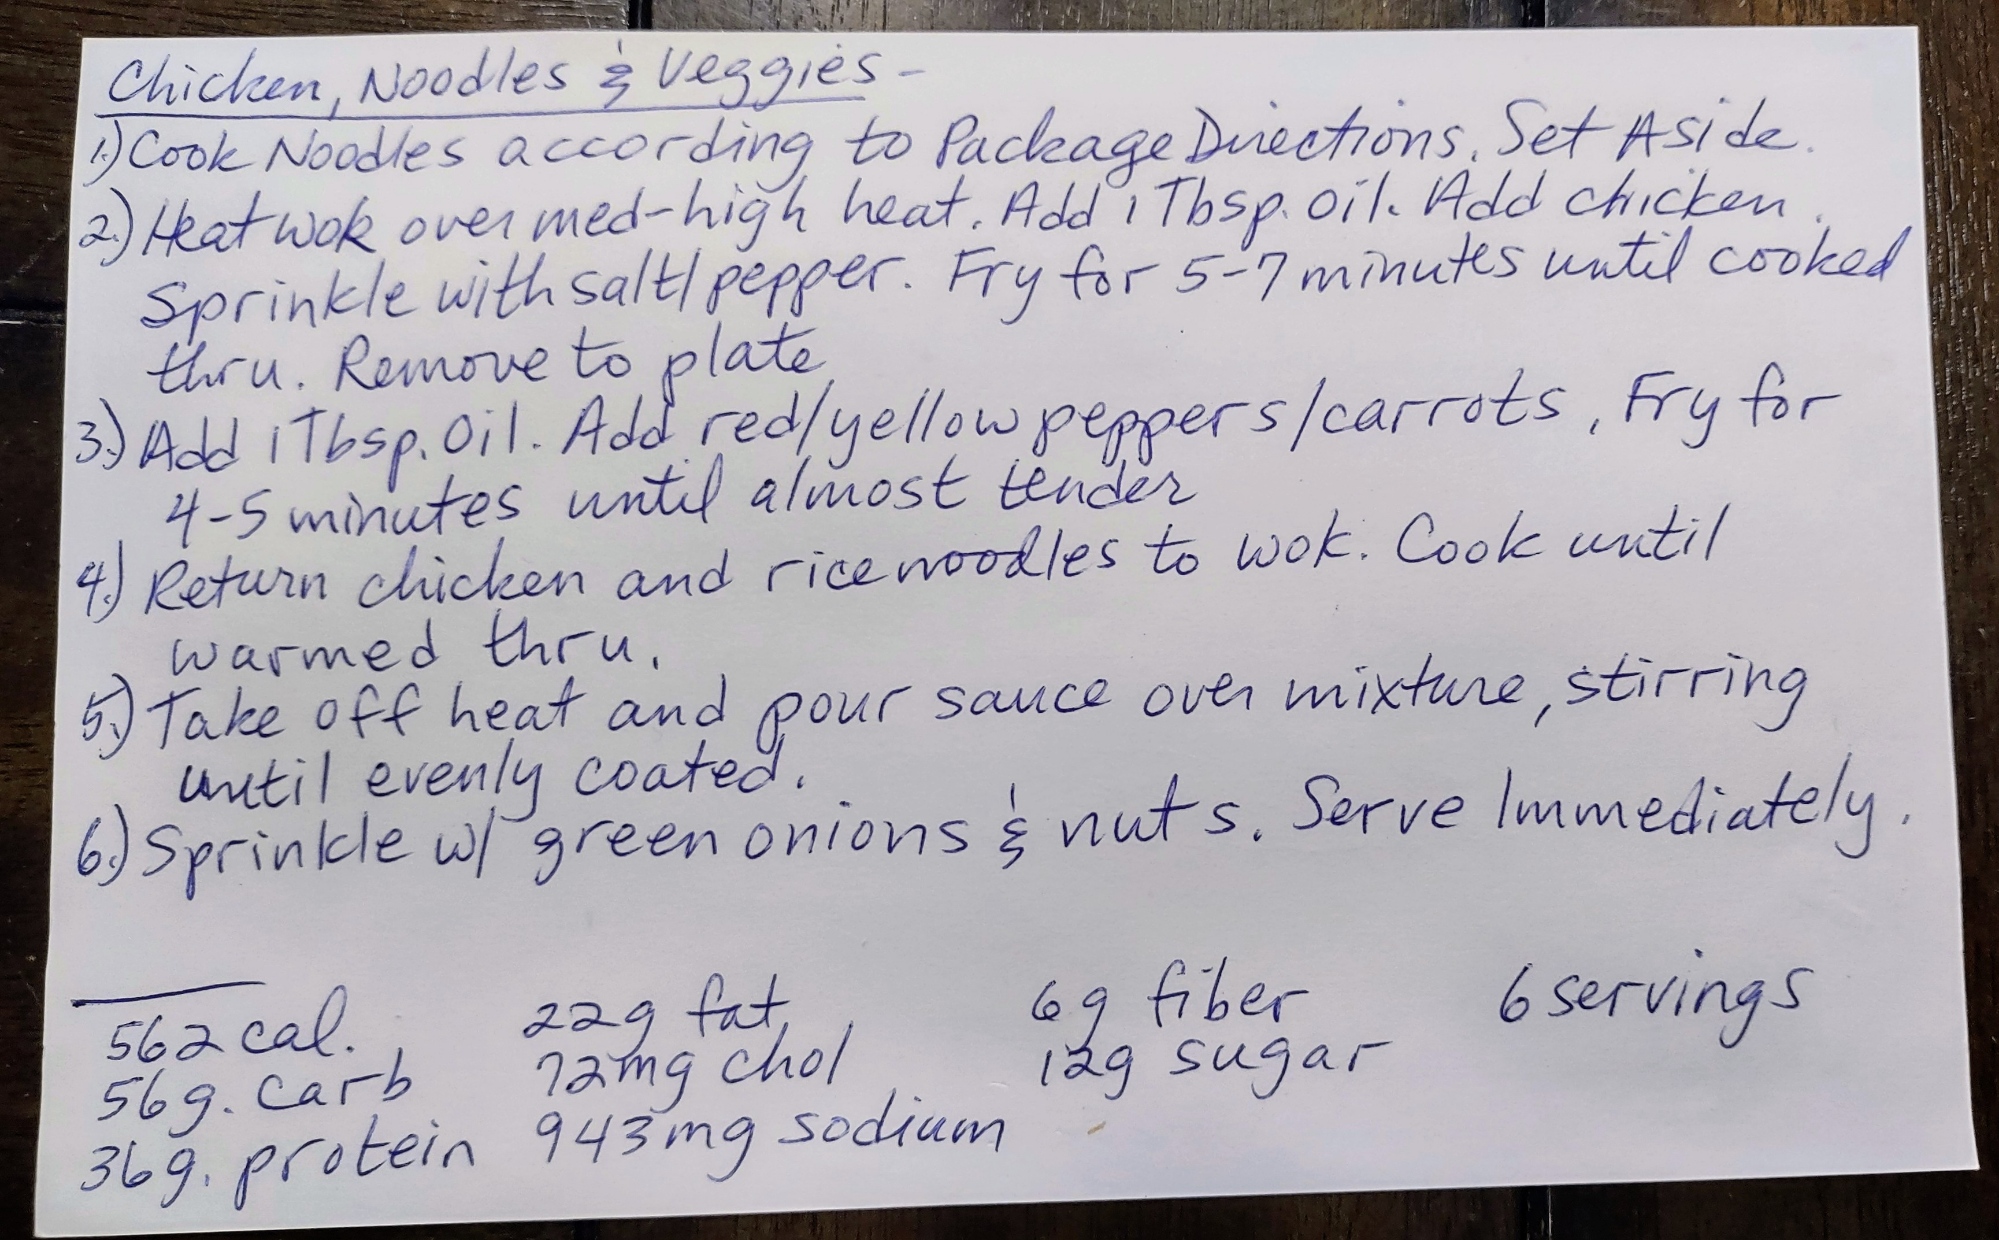 Chicken, Noodles & Veggies -
1.) Cook Noodles according to Package Directions. Set Aside.
2.) Heat wok over med-high heat. Add 1 Tbsp. oil. Add chicken.
Sprinkle with salt/pepper. Fry for 5-7 minutes until cooked
thru. Remove to plate
3.) Add 1 Tbsp. Oil. Add red/yellow peppers/carrots, Fry for
4-5 minutes until almost tender
4.) Return chicken and rice noodles to wok. Cook until
warmed thru.
5.) Take off heat and pour sauce over mixture, stirring
until evenly coated.
6.) Sprinkle w/ green onions & nuts. Serve Immediately.
562 cal. 22g fat 6g fiber 6 servings
56g. carb 72mg chol 12g sugar
36g. protein 943mg sodium